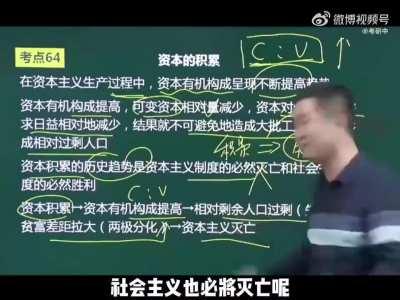 微博视频号
@考研中
考点64
资本的积累
C:V
在资本主义生产过程中，资本有机构成呈现不断提高趋势
资本有机构成提高，可变资本相对量减少，资本对
求日益相对地减少，结果就不可避免地造成大批工
成相对过剩人口
积累
资本积累的历史趋势是资本主义制度的必然灭亡和社会
度的必然胜利
C:V
资本积累→资本有机构成提高→相对剩余人口过剩（
贫富差距拉大（两极分化）→资本主义灭亡
社会主义也必将灭亡呢